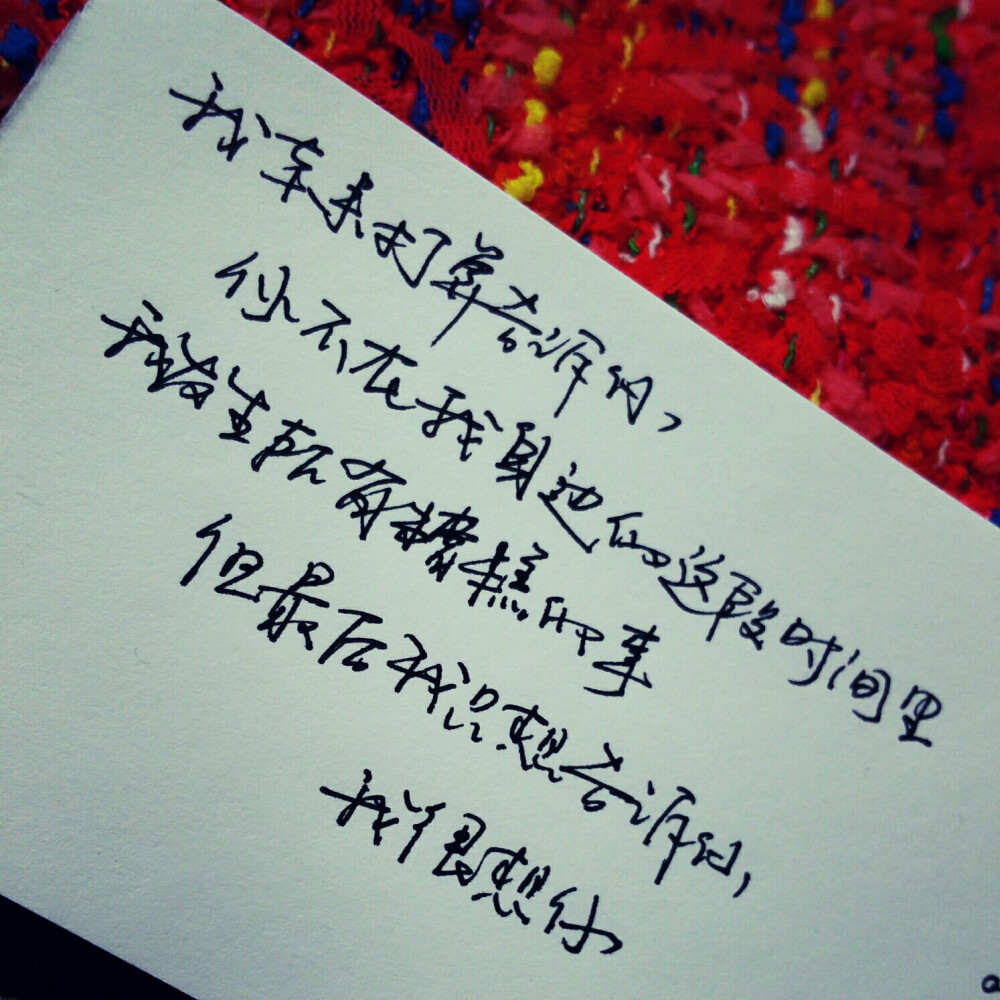 我本来打算告诉你,
你不在我身边的这段时间里
我发生所有糟糕的事
但最后我只想告诉你,
我很想你